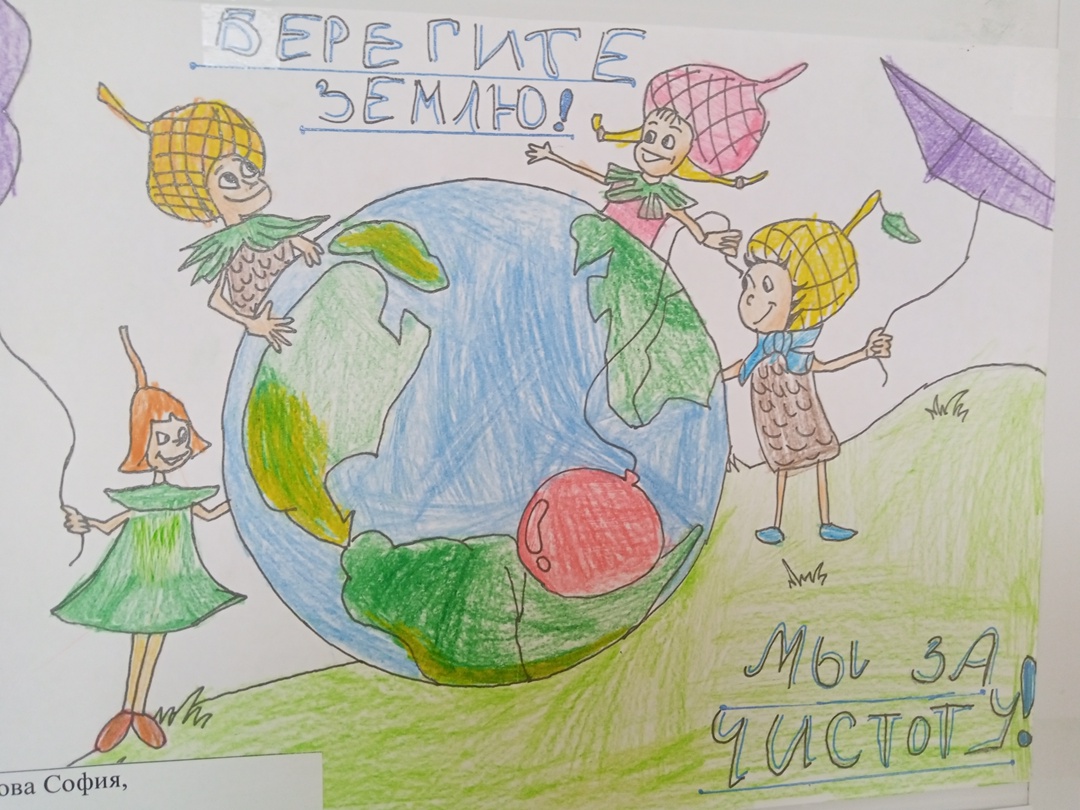 БЕРЕГИТЕ
ЗЕМЛЮ!
МЫ ЗА
ЧИСТОТУ!
ова София,